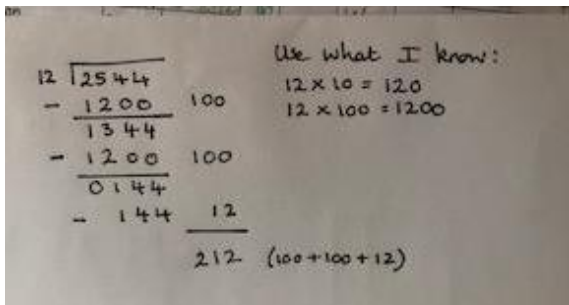 Use what I know:
12 × 10 = 120
12 × 100 = 1200
12 2544
- 1200 100
1344
- 1200 100
0144
- 144 12
212 (100+100+12)